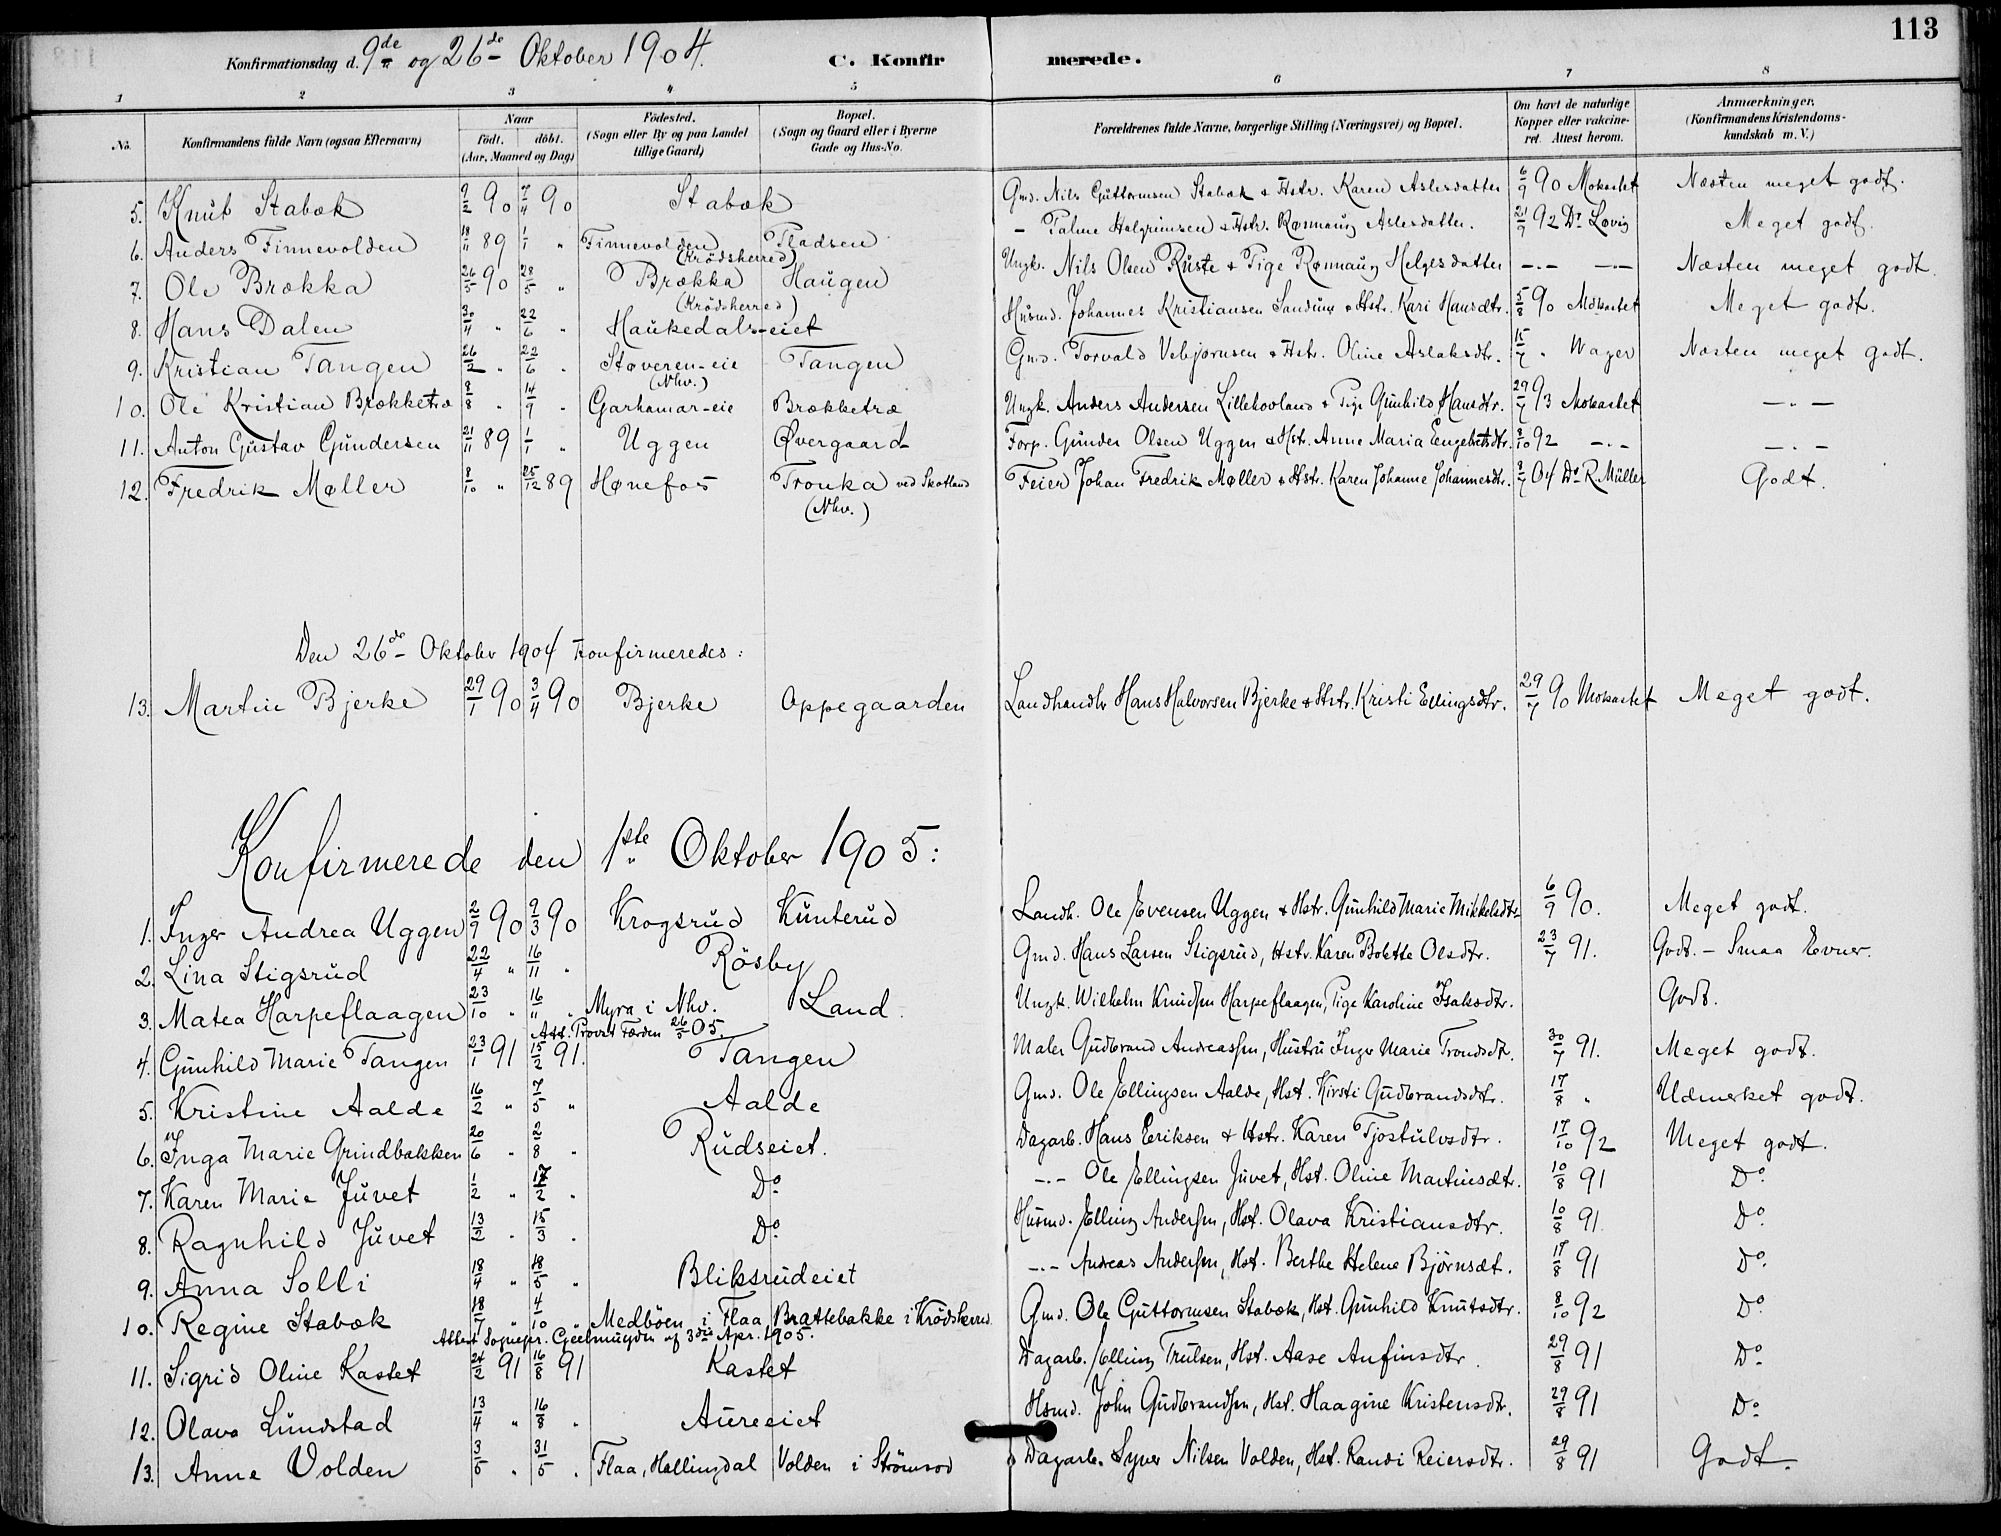 113
Konfirmationsdag d. 9de og 26de Oktober 1904. C. Konfirmerede.
1 2 3 4 5 6 7 8
No. Konfirmandens fulde Navn (ogsaa Efternavn) Naar födt. döbt. (Aar, Maaned og Dag) Födested. (Sogn eller By og paa Landet tillige Gaard) Bopæl. (Sogn og Gaard eller i Byerne Gade og Hus-No. Forældrenes fulde Navne, borgerlige Stilling (Næringsvei) og Bopæl. Om havt de naturlige Kopper eller vakcineret. Attest herom. Anmærkninger. (Konfirmandens Kristendomskundskab m. V.)
5. Knut Stabæk 9/2 90 7/4 90 Stabæk Gmd. Nils Guttormsen Stabæk & Hstr. Karen Aslesdatter 6/9 90 Mokastet Næsten meget godt.
6. Anders Finnevolden 18/11 89 1/1 " Finnevolden (Krödsherred) Pladsen - Palme Halgrimsen & Hstr. Rønnaug Aslesdatter. 21/9 92 Dr. Løvig Meget godt.
7. Ole Brækka 26/5 90 28/5 " Brækka (Krödsherred) Haugen Ungk. Nils Olsen Ruste & Pige Rønnaug Helgesdatter -"- -"- Næsten meget godt.
8. Hans Dalen 30/4 " 22/6 " Haukedals-eiet Husmd. Johannes Kristiansen Sandum & Hstr. Kari Hansdtr. 5/8 90 Mokastet Meget godt.
9. Kristian Tangen 26/2 " 22/6 " Støveren-eie (Nhv.) Tangen Gmd. Torvald Vebjørnsen & Hstr. Oline Aslaksdtr. 15/7 " Wager Næsten meget godt.
10. Ole Kristian Brækketræ 8/8 " 14/9 " Garhamar-eie Brækketræ Ungk. Anders Andersen Lillehovland & Pige Gunhild Hansdtr. 29/7 93 Mokastet -"-
11. Anton Gustav Gundersen 21/11 89 1/1 " Uggen Øvergaard Forp. Gunder Olsen Uggen & Hstr. Anne Maria Engebretsdtr. 8/10 92 -"- -"-
12. Fredrik Møller 8/10 " 25/12 89 Hønefos Tronka ved Skotland (Nhv.) Feier Johan Fredrik Møller & Hstr. Karen Johanne Johannesdtr. 8/7 04 Dr. R. Müller Godt.
Den 26de Oktober 1904 konfirmeredes:
13. Martin Bjerke 29/1 90 3/4 90 Bjerke Oppegaarden Landhandlr Hans Halvorsen Bjerke & Hstr. Kristi Ellingsdtr. 29/7 90 Mokastet Meget godt.
Konfirmerede den 1ste Oktober 1905:
1. Inger Andrea Uggen 2/9 90 9/3 90 Krogsrud Kunterud Landh. Ole Evensen Uggen & Hstr. Gunhild Marie Mikkelsdtr. 6/9 90. Meget godt.
2. Lina Stigsrud 22/4 " 16/11 " Rösby Gmd. Hans Larsen Stigsrud, Hstr. Karen Bolette Olsdtr. 23/7 91. Godt. - Smaa Evner.
3. Matea Harpeflaagen 23/10 " 16/11 " Myra i Nhv. Land Ungk. Wilhelm Knudsen Harpeflaagen, Pige Karoline Isaksdtr. Godt.
Att. Provst Færden 26/5 05.
4. Gunhild Marie Tangen 23/1 91 15/2 91. Tangen Maler Gudbrand Andreassen, Hustru Inger Marie Trondsdtr. 30/7 91. Meget godt.
5. Kristine Aalde 16/2 " 7/5 " Aalde Gmd. Ole Ellingsen Aalde, Hst. Kirsti Gudbrandsdtr. 17/8 " Udmerket godt.
6. Inga Marie Grindbakken 20/6 " 2/8 " Rudseiet. Dagarb. Hans Eriksen & Hstr. Karen Tjostulvsdtr. 17/10 92 Meget godt.
7. Karen Marie Juvet 1/2 " 17/2 " Do. -"- Ole Ellingsen Juvet, Hst. Oline Martinsdtr. 10/8 91 Do.
8. Ragnhild Juvet 13/2 " 15/3 " Do. Husmd. Elling Andersen, Hst. Olava Kristiansdtr. 10/8 91. Do.
9. Anna Solli 18/4 " 18/5 " Bliksrudeiet -"- Andreas Andersen, Hst. Berthe Helene Bjørnsdt. 17/8 91 Do.
10. Regine Stabæk 18/7 " 4/10 " Medböen i Flaa Brattebakke i Krödsherred. Gmd. Ole Guttormsen Stabæk, Hst. Gunhild Knutsdtr. 8/10 92 Do.
Attest Sognepr. Gjelmuyden af 3die Apr. 1905.
11. Sigrid Oline Kastet 24/2 91 16/8 91 Kastet Dagarb. Elling Trulsen, Hst. Aase Anfinsdtr. 29/8 91 Do.
12. Olava Lundstad 13/4 " 16/8 " Aureeiet Hsmd. John Gudbrandsen, Hst. Haagine Kristensdtr. 29/8 91 Do.
13. Anne Volden 3/5 " 31/5 " Flaa, Hallingdal Volden i Strömsod Dagarb. Syver Nilsen Volden, Hst. Randi Reiersdtr. 29/8 91 Godt.